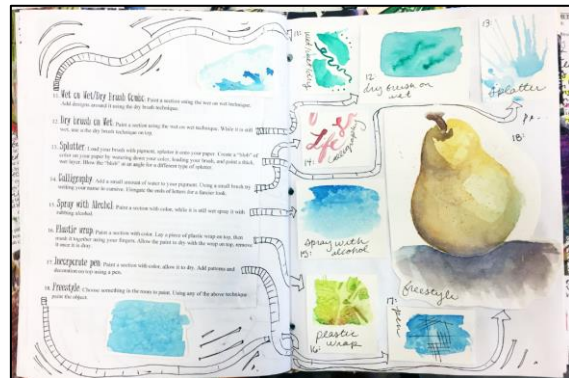 11. Wet on Wet/Dry Brush Combo: Paint a section using the wet on wet technique.
Add designs around it using the dry brush technique.
12. Dry brush on Wet: Paint a section using the wet on wet technique. While it is still
wet, use a the dry brush technique on top.
13. Splatter: Load your brush with pigment, splatter it onto your paper. Create a "blob" of
color on your paper by watering down your color, loading your brush, and paint a thick,
wet layer. Blow the "blob" at an angle for a different type of splatter.
14. Calligraphy: Add a small amount of water to your pigment. Using a small brush try
writing your name in cursive. Elongate the ends of letters for a fancier look.
15. Spray with Alcohol: Paint a section with color, while it is still wet spray it with
rubbing alcohol.
16. Plastic wrap: Paint a section with color. Lay a piece of plastic wrap on top, then
mush it together using your fingers. Allow the paint to dry with the wrap on top, remove
it once it is dry.
17. Incorporate pen: Paint a section with color, allow it to dry. Add patterns and
decoration on top using a pen.
18. Freestyle: Choose something in the room to paint. Using any of the above technique
paint the object.
11:
12
dry brush on
wet
13:
splatter
14:
Calligraphy
spray with
15: alcohol
plastic
16: wrap
17:
pen
18:
freestyle